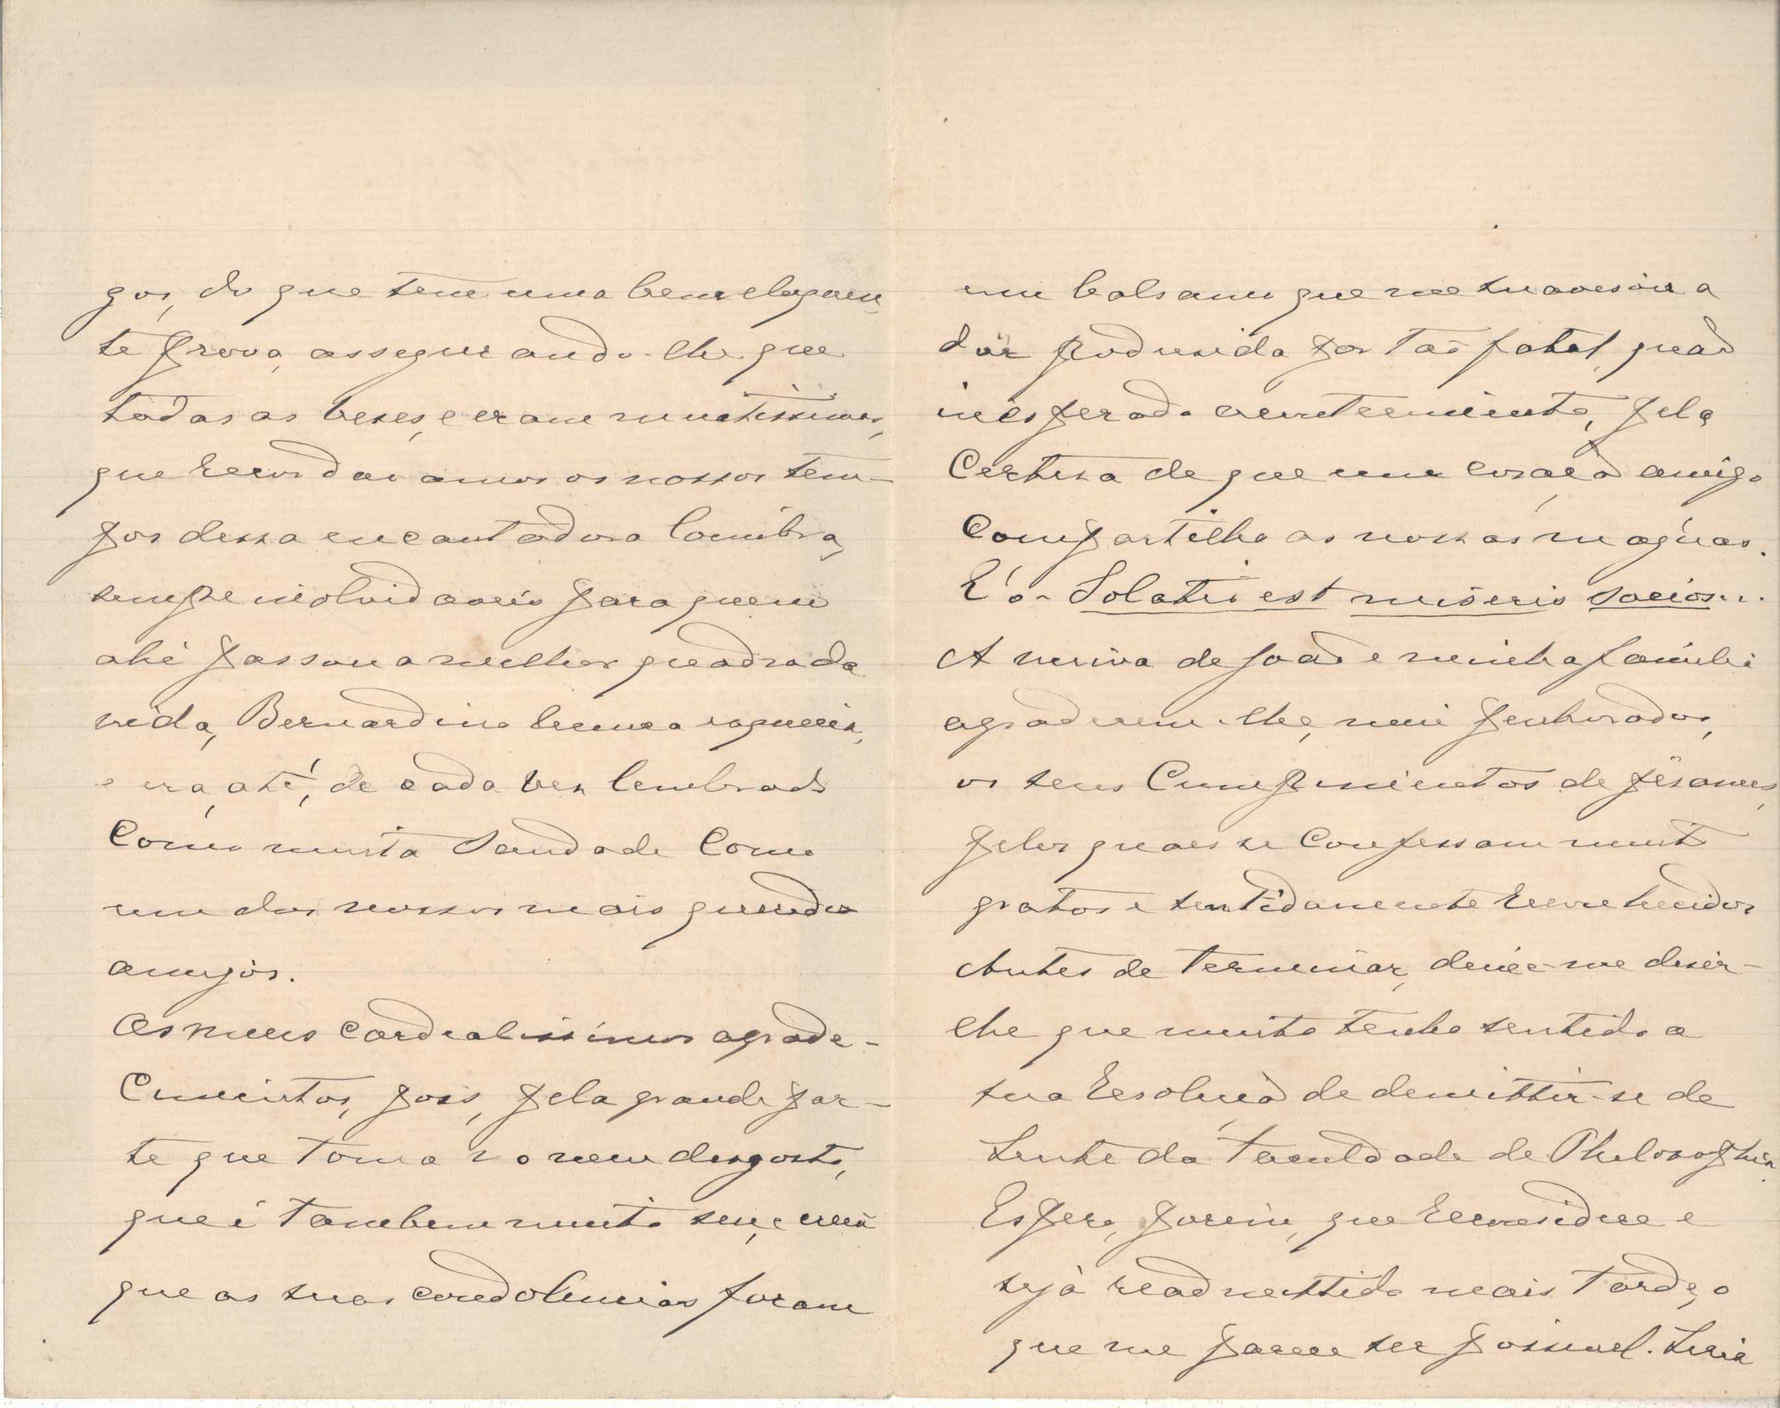 gos, do que tem uma bem eloquen-
te prova, assegurando-lhe que
todas as vezes, e eram muitissimas,
que recordavamos os nossos tem-
pos dessa encantadora Coimbra,
sempre inolvidaveis para quem
ahi passou a melhor quadra da
vida, Bernardino nunca esqueceu,
e era, até, de cada vez lembrado
com muita saudade como
um dos nossos mais queridos
amigos.
Os meus cordealissimos agrade-
cimentos, pois, pela grande par-
te que toma no meu desgosto,
que é tambem muito seu, e creia
que as suas condolencias foram
um balsamo que me suavisou a
dôr produsida por tão fatal, quão
inesperado acontecimento, pela
certesa de que um coração amigo
compartilha as nossas máguas.
É o - Solatio est miseris socios...
A viuva de João e minha familia
agradecem-lhe, mui penhorados,
os seus cumprimentos de pêsames,
pelos quaes se confessam muito
gratos e sentidamente reconhecidos
Antes de terminar, deixe-me diser-
lhe que muito tenho sentido a
sua resolução de demittir-se de
Lente da Faculdade de Philosophia.
Espero, porém, que reconsidere e
seja readmittido mais tarde, o
que me parece ser possivel. Seria